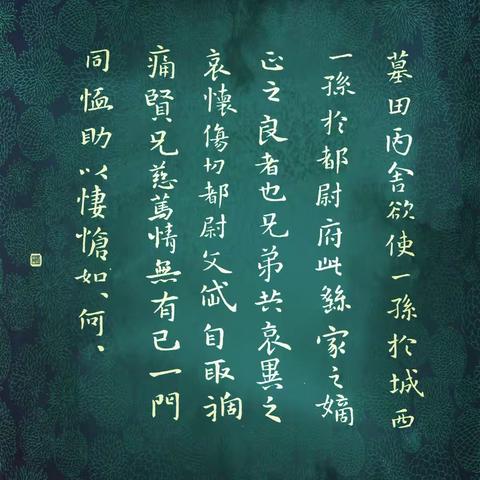 墓田丙舍欲使一孫於城西
一孫於都尉府此繇家之嫡
正之良者也兄弟共哀異之
哀懷傷切都尉文岱自取禍
痛賢兄慈篤情無有已一門
同恤助以悽愴如、何、